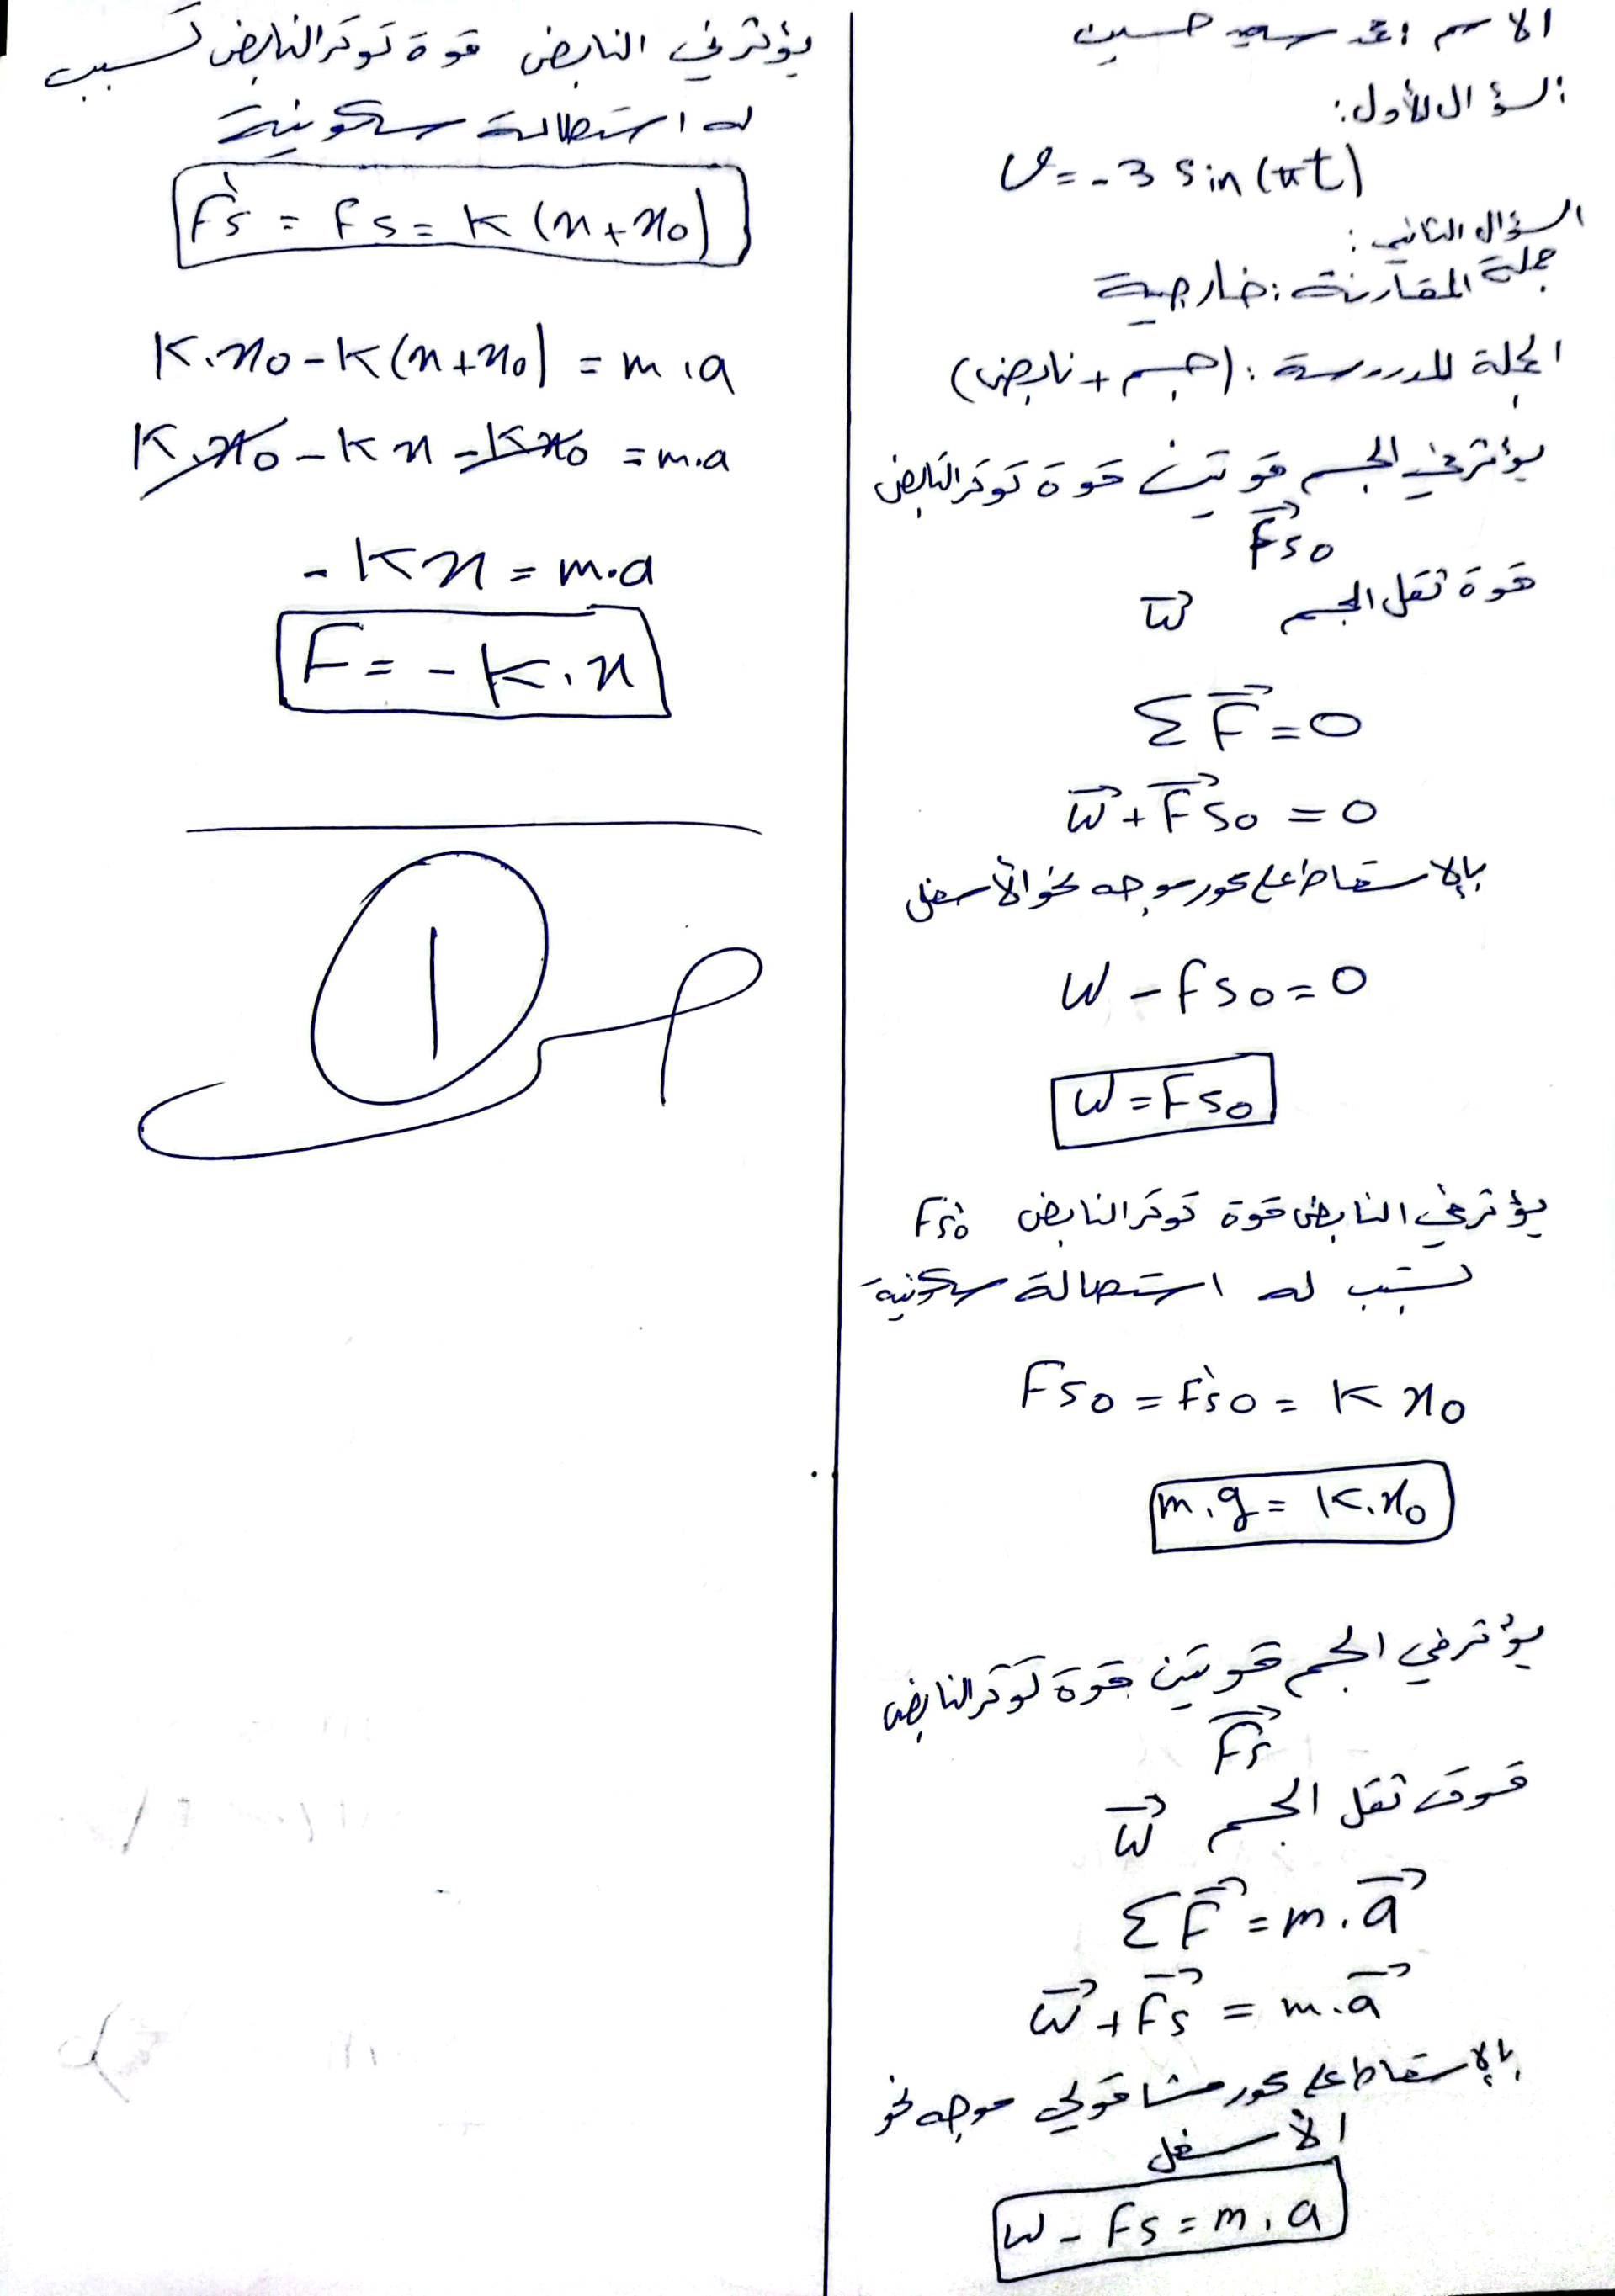 الاسم : محمد سعيد حسين
السؤال الأول:
v = -3 sin(πt)
السؤال الثاني:
جملة المقارنة: خارجية
الجملة المدروسة: (جسم + نابض)
يؤثر في الجسم قوتين قوة توتر النابض
Fs0
قوة ثقل الجسم W
Σ F = 0
W + Fs0 = 0
بالإسقاط على محور موجه نحو الأسفل
W - Fs0 = 0
W = Fs0
يؤثر في النابض قوة توتر النابض F's0
تسبب له استطالة سكونية
Fs0 = F's0 = K x0
m.g = K.x0
يؤثر في الجسم قوتين قوة توتر النابض
Fs
قوة ثقل الجسم W
Σ F = m.a
W + Fs = m.a
بالإسقاط على محور شاقولي موجه نحو
الأسفل
W - Fs = m.a
يؤثر في النابض قوة توتر النابض تسبب
له استطالة سكونية
F's = Fs = K (x + x0)
K.x0 - K(x + x0) = m.a
K.x0 - K x - K x0 = m.a
- K x = m.a
F = - K.x
1